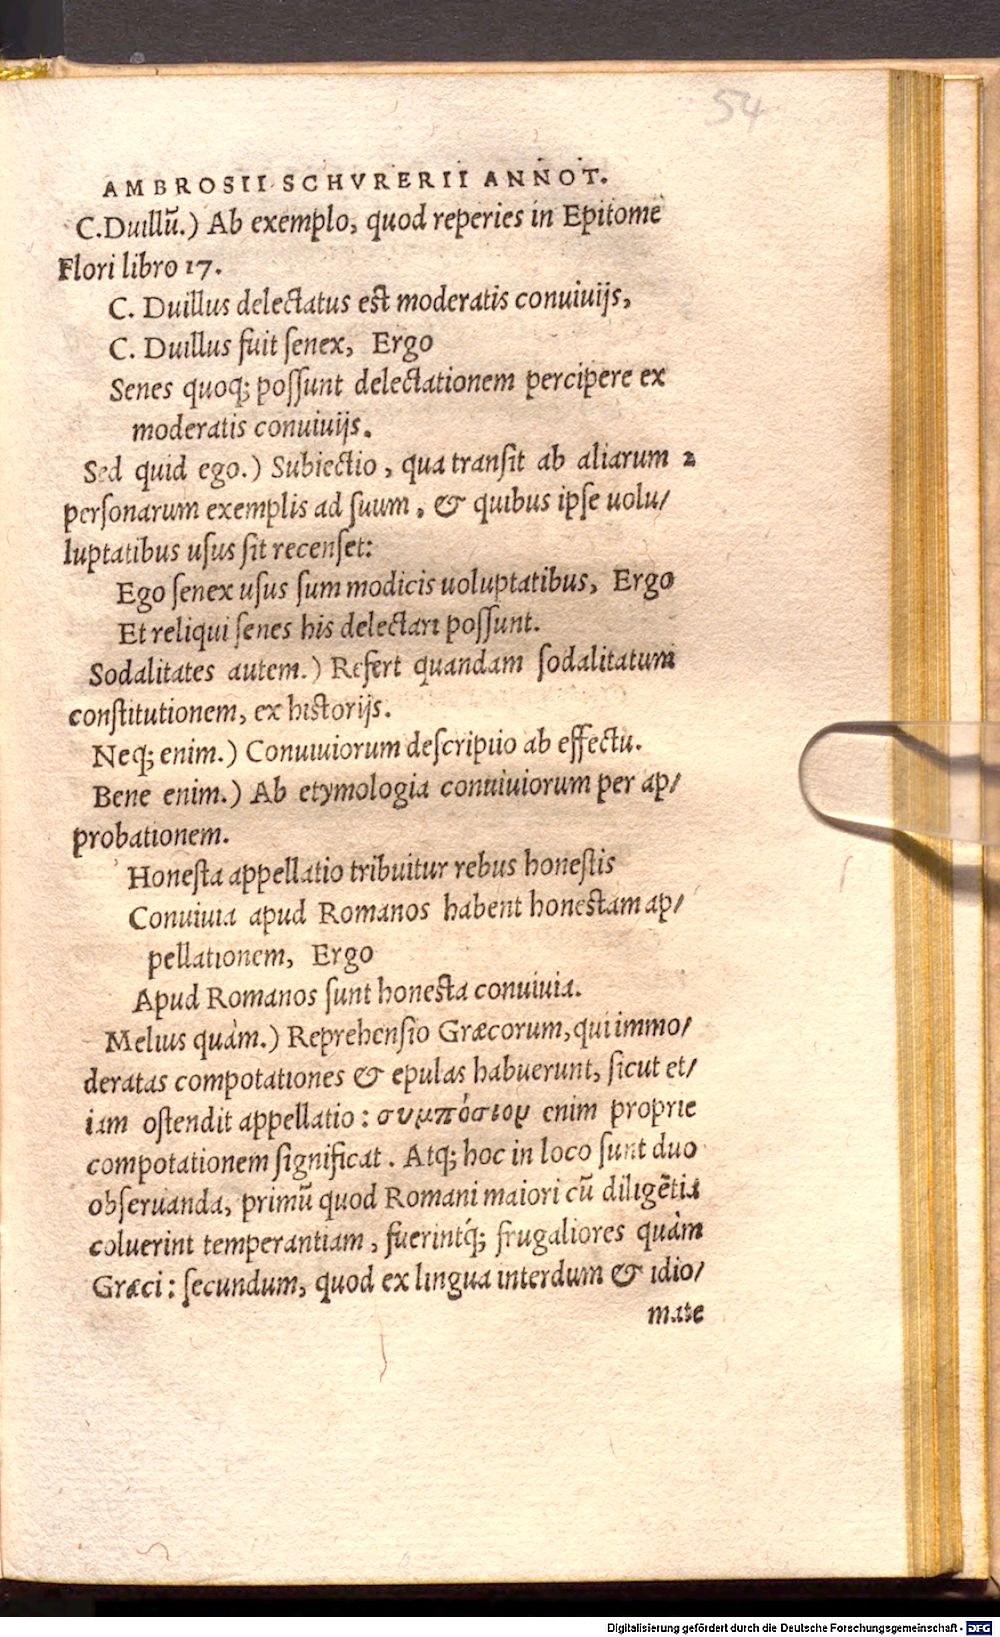 54
AMBROSII SCHVRERII ANNOT.
C. Duillũ.) Ab exemplo, quod reperies in Epitome
Flori libro 17.
C. Duillus delectatus est moderatis conuiuijs,
C. Duillus fuit ſenex, Ergo
Senes quoq; poſſunt delectationem percipere ex
moderatis conuiuijs.
Sed quid ego.) Subiectio, qua tranſit ab aliarum 2
perſonarum exemplis ad ſuum, & quibus ipſe uolu/
luptatibus uſus ſit recenſet:
Ego ſenex uſus ſum modicis uoluptatibus, Ergo
Et reliqui ſenes his delectari poſſunt.
Sodalitates autem.) Refert quandam ſodalitatum
conſtitutionem, ex historijs.
Neq; enim.) Conuiuiorum deſcriptio ab effectu.
Bene enim.) Ab etymologia conuiuiorum per ap/
probationem.
Honeſta appellatio tribuitur rebus honeſtis
Conuiuia apud Romanos habent honestam ap/
pellationem, Ergo
Apud Romanos ſunt honesta conuiuia.
Melius quàm.) Reprehenſio Græcorum, qui immo/
deratas compotationes & epulas habuerunt, ſicut et/
iam oſtendit appellatio: συμπόσιον enim proprie
compotationem ſignificat. Atq; hoc in loco ſunt duo
obſeruanda, primũ quod Romani maiori cũ diligẽtia
coluerint temperantiam, fuerintq́; frugaliores quàm
Græci: ſecundum, quod ex lingua interdum & idio/
mate
Digitalisierung gefördert durch die Deutsche Forschungsgemeinschaft - DFG